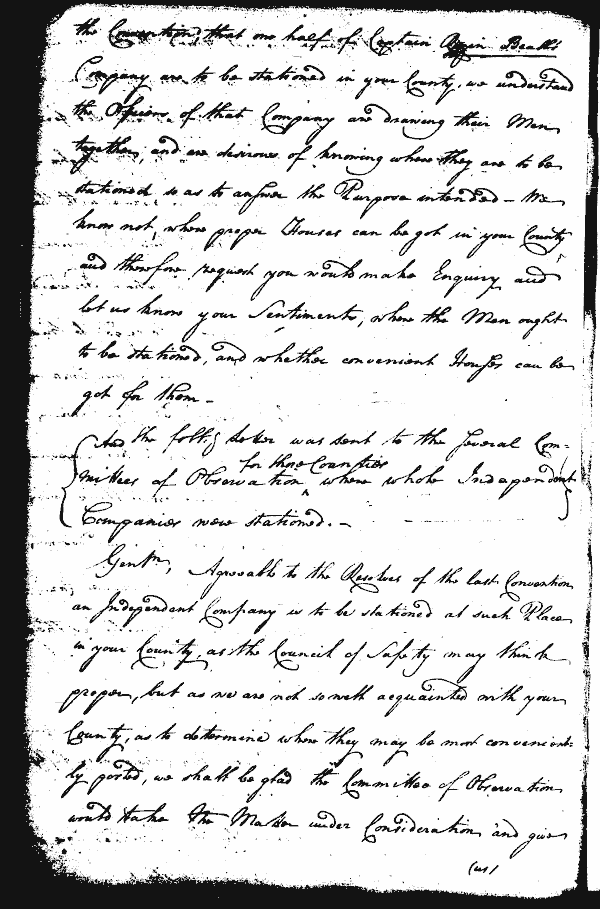 the Convention, that one half of Captain Rezin Beall's
Company are to be stationed in your County, we understand
the Officers of that Company are drawing their Men
together, and are desirous of knowing where they are to be
stationed so as to answer the Purpose intended – We
know not, where proper Houses can be got in your County
and therefore request you would make Enquiry and
let us know your Sentiments, where the Men ought
to be stationed, and whether convenient Houses can be
got for them –
And the follg letter was sent to the several Com-
mittees of Observation for those Counties where whole Independent
Companies were stationed. –
Gentn, Agreeable to the Resolves of the last Convention
an Independent Company is to be stationed at such Place
in your County, as the Council of Safety may think
proper, but as we are not so well acquainted with your
County, as to determine where they may be most convenient-
ly posted, we shall be glad the Committee of Observation
would take the Matter under Consideration and give
(us)